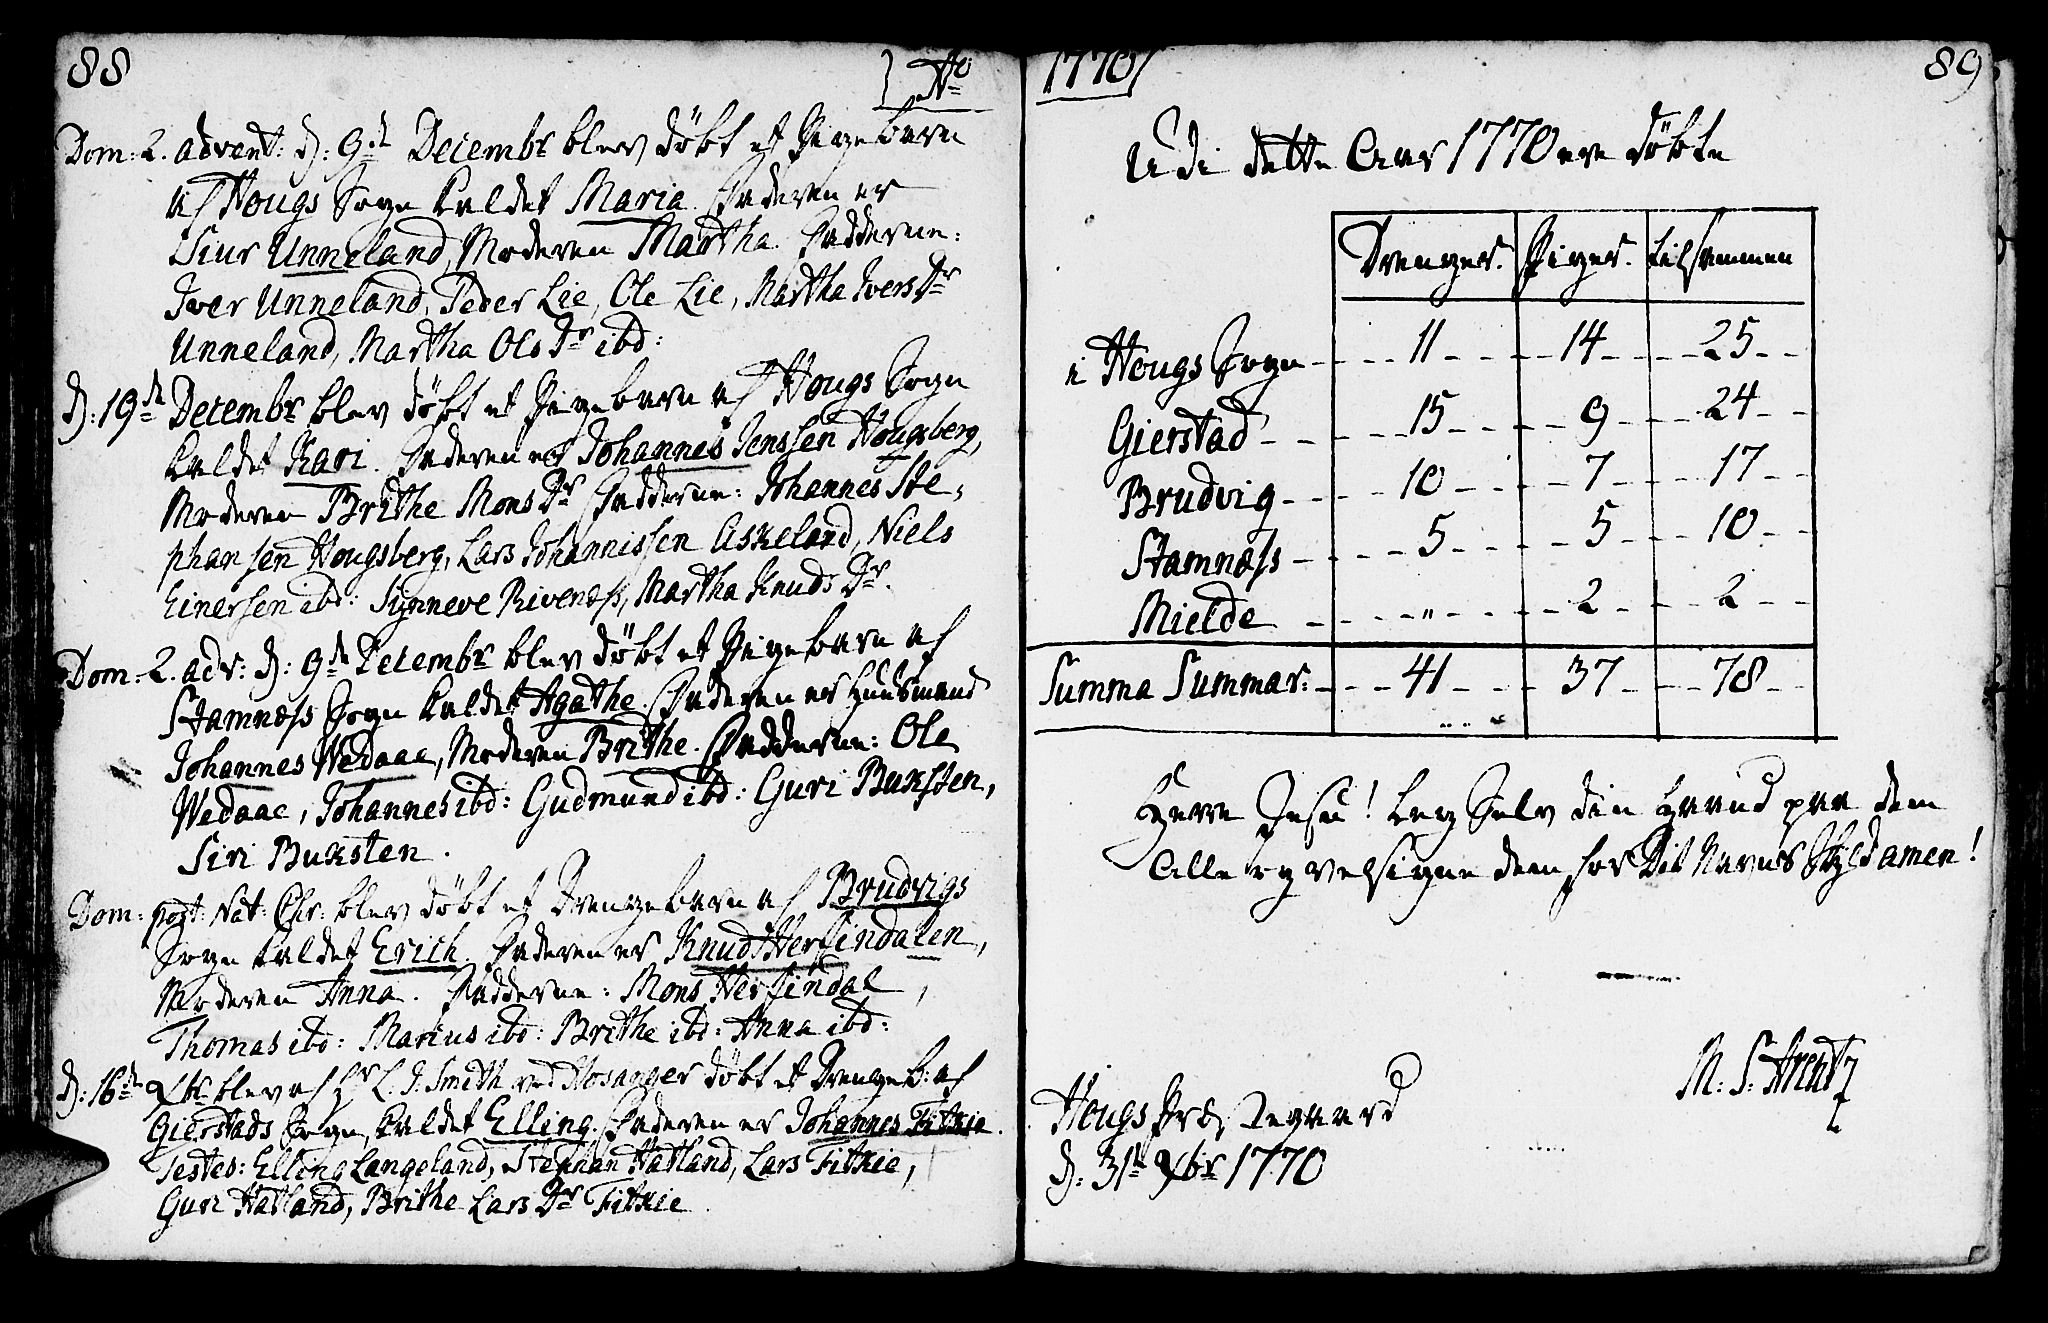 88
Ao
Dom: 2. advent: d: 9de Decembr blev döbt et Pigebarn
af Hougs Sogn kaldet Maria. Faderen er
Siur Unneland, Moderen Martha. Fadderne:
Iver Unneland, Peder Lie, Ole Lie, Martha IversDr
Unneland, Martha OlsDr ibd:
d: 19de Decembr blev döbt et Pigebarn af Hougs Sogn
kaldet Kari. Faderen er Johannes Jenssen Hougsberg,
Moderen Brithe MonsDr Fadderne: Johannes Ste-
phansen Hougsberg, Lars Johannissen Askeland, Niels
Einersen ibd: Synneve Rivenæss, Martha KnudsDr.
Dom: 2. adv: d: 9de Decembr blev döbt et Pigebarn af
Stamnæss Sogn kaldet Agathe. Faderen er Huusmand
Johannes Wedaae, Moderen Brithe. Fadderne: Ole
Wedaae, Johannes ibd: Gudmund ibd: Guri Buksten,
Siri Buksten.
Dom: post: Nat: Chr: blev döbt et Drengebarn af Brudvigs
Sogn kaldet Erich. Faderen er Knud Hersindalen,
Moderen Anna. Fadderne: Mons Hersindal,
Thomas ibd: Marius ibd: Brithe ibd: Anna ibd:
d: 16de Xbr blev af Hr L. J. Smith ved Hosanger döbt et Drengeb: af
Gierstads Sogn, kaldet Elling. Faderen er Johannes Fitkie.
Testes: Elling Langeland, Stephan Hatland, Lars Fitkie,
Guri Hatland, Brithe LarsDr Fitkie.
1770
89
Udi dette Aar 1770 ere döbte
Drenger. Piger. tilsammen
i Hougs Sogn 11 14 25
Gierstad 15 9 24
Brudvig 10 7 17
Stamnæss 5 5 10
Mielde " 2 2
Summa Summar: 41 37 78
Herre Jesu! Leg Selv din Haand paa dem
Alle og velsigne dem for Dit Navns Skyld amen!
M: S: Arentz
Hougs Præstegaard
d: 31te Xbr 1770